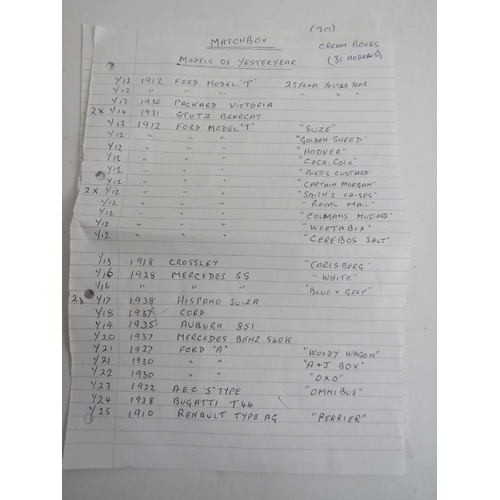 (30)
MATCHBOX
CREAM BOXES
MODELS OF YESTERYEAR
(31 MODELS)
Y/12 1912 FORD MODEL "T" 25 YEARS YESTERYEAR
Y/12 " " " " " "
Y/13 1930 PACKARD VICTORIA
2x Y/14 1931 STUTZ BEARCAT
Y/12 1912 FORD MODEL "T" "SUZE"
Y/12 " " " "GOLDEN SHRED"
Y/12 " " " "HOOVER"
Y/12 " " " "COCA, COLA"
Y/12 " " " "BIRD'S CUSTARD"
Y/12 " " " "CAPTAIN MORGAN"
2x Y/12 " " " "SMITH'S CRISPS"
Y/12 " " " "ROYAL MAIL"
Y/12 " " " "COLMANS MUSTARD"
Y/12 " " " "WEETABIX"
Y/12 " " " "CEREBOS SALT"
Y/13 1918 CROSSLEY "CARLSBERG"
Y/16 1928 MERCEDES SS "WHITE"
Y/16 " " " "BLUE + GREY"
2x Y/17 1938 HISPANO SUIZA
Y/18 1937 CORD
Y/19 1935 AUBURN 851
Y/20 1937 MERCEDES BENZ 540K
Y/21 1927 FORD "A" "WOODY WAGON"
Y/21 1930 " " "A+J BOX"
Y/22 1930 " " "OXO"
Y/23 1922 A.E.C "S" TYPE "OMNIBUS"
Y/24 1928 BUGATTI T44
Y/25 1910 RENAULT TYPE AG "PERRIER"